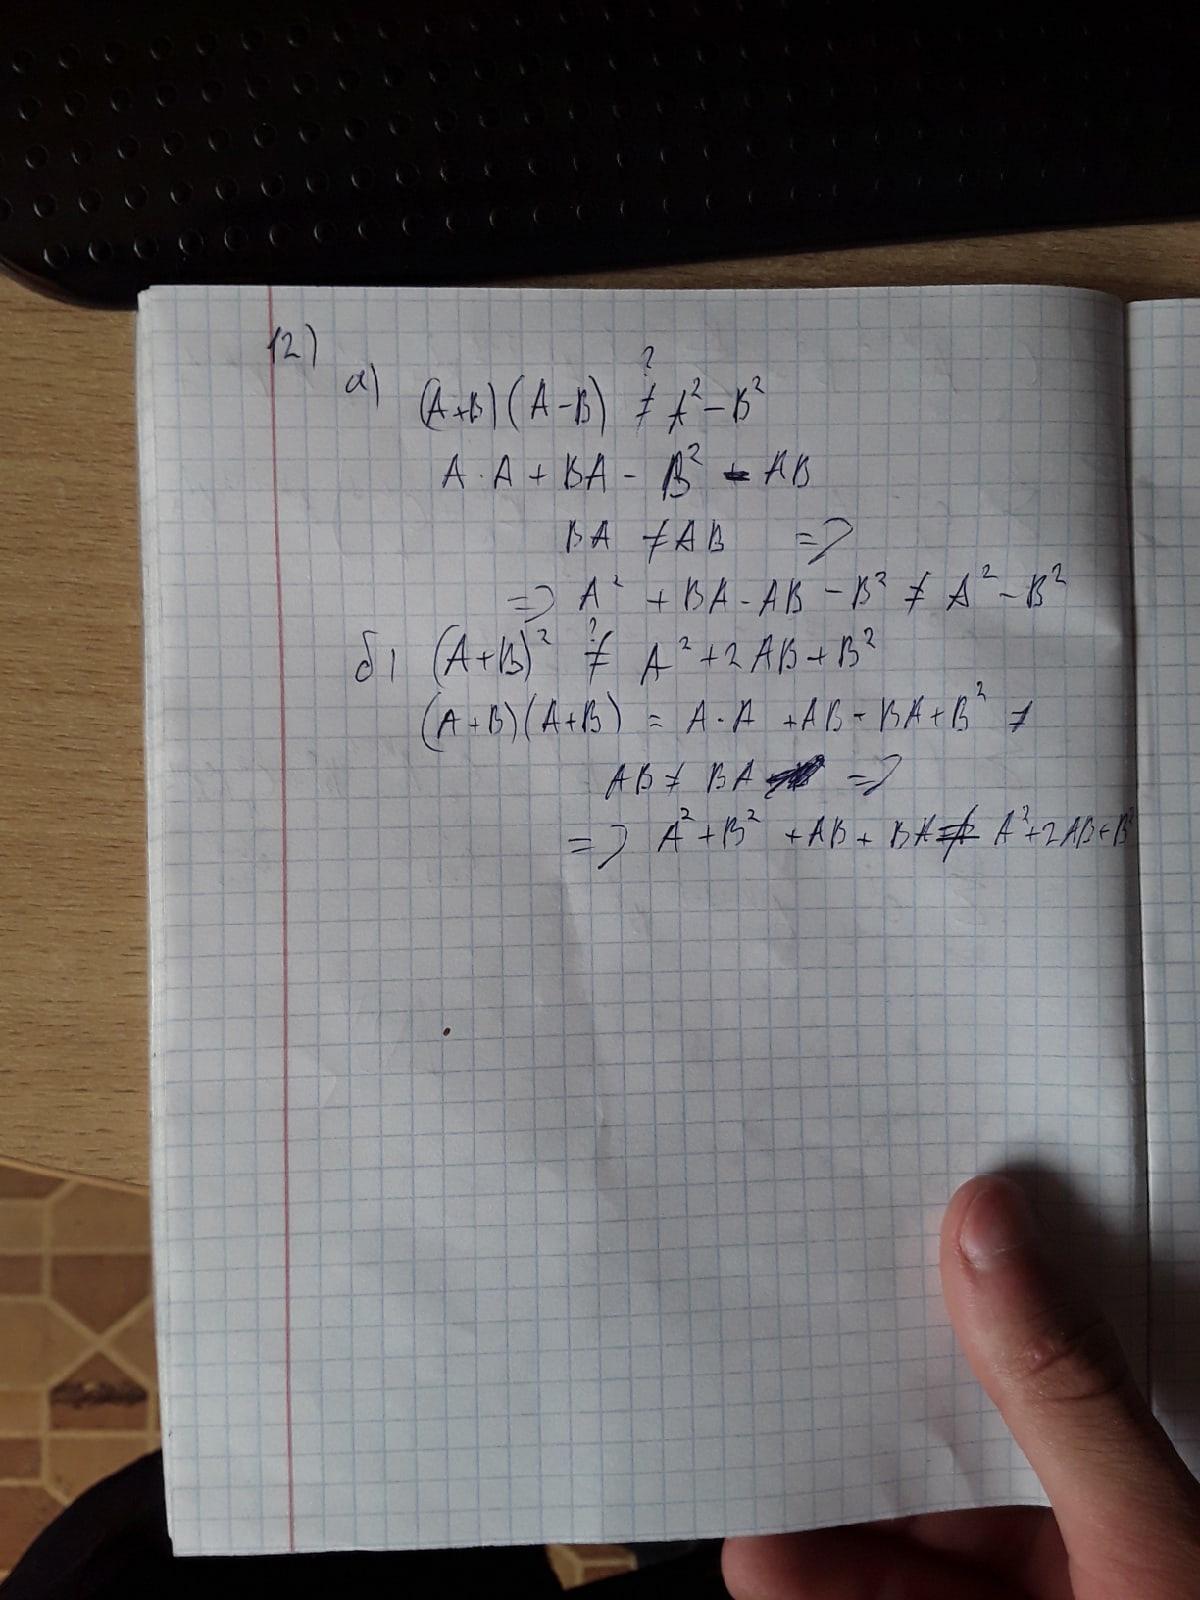 12)
а) (A+B)(A-B) ≠? A² - B²
A·A + BA - B² - AB
BA ≠ AB =>
=> A² + BA - AB - B² ≠ A² - B²
б) (A+B)² ≠? A² + 2AB + B²
(A+B)(A+B) = A·A + AB + BA + B² ≠
AB ≠ BA =>
=> A² + B² + AB + BA ≠ A² + 2AB + B²